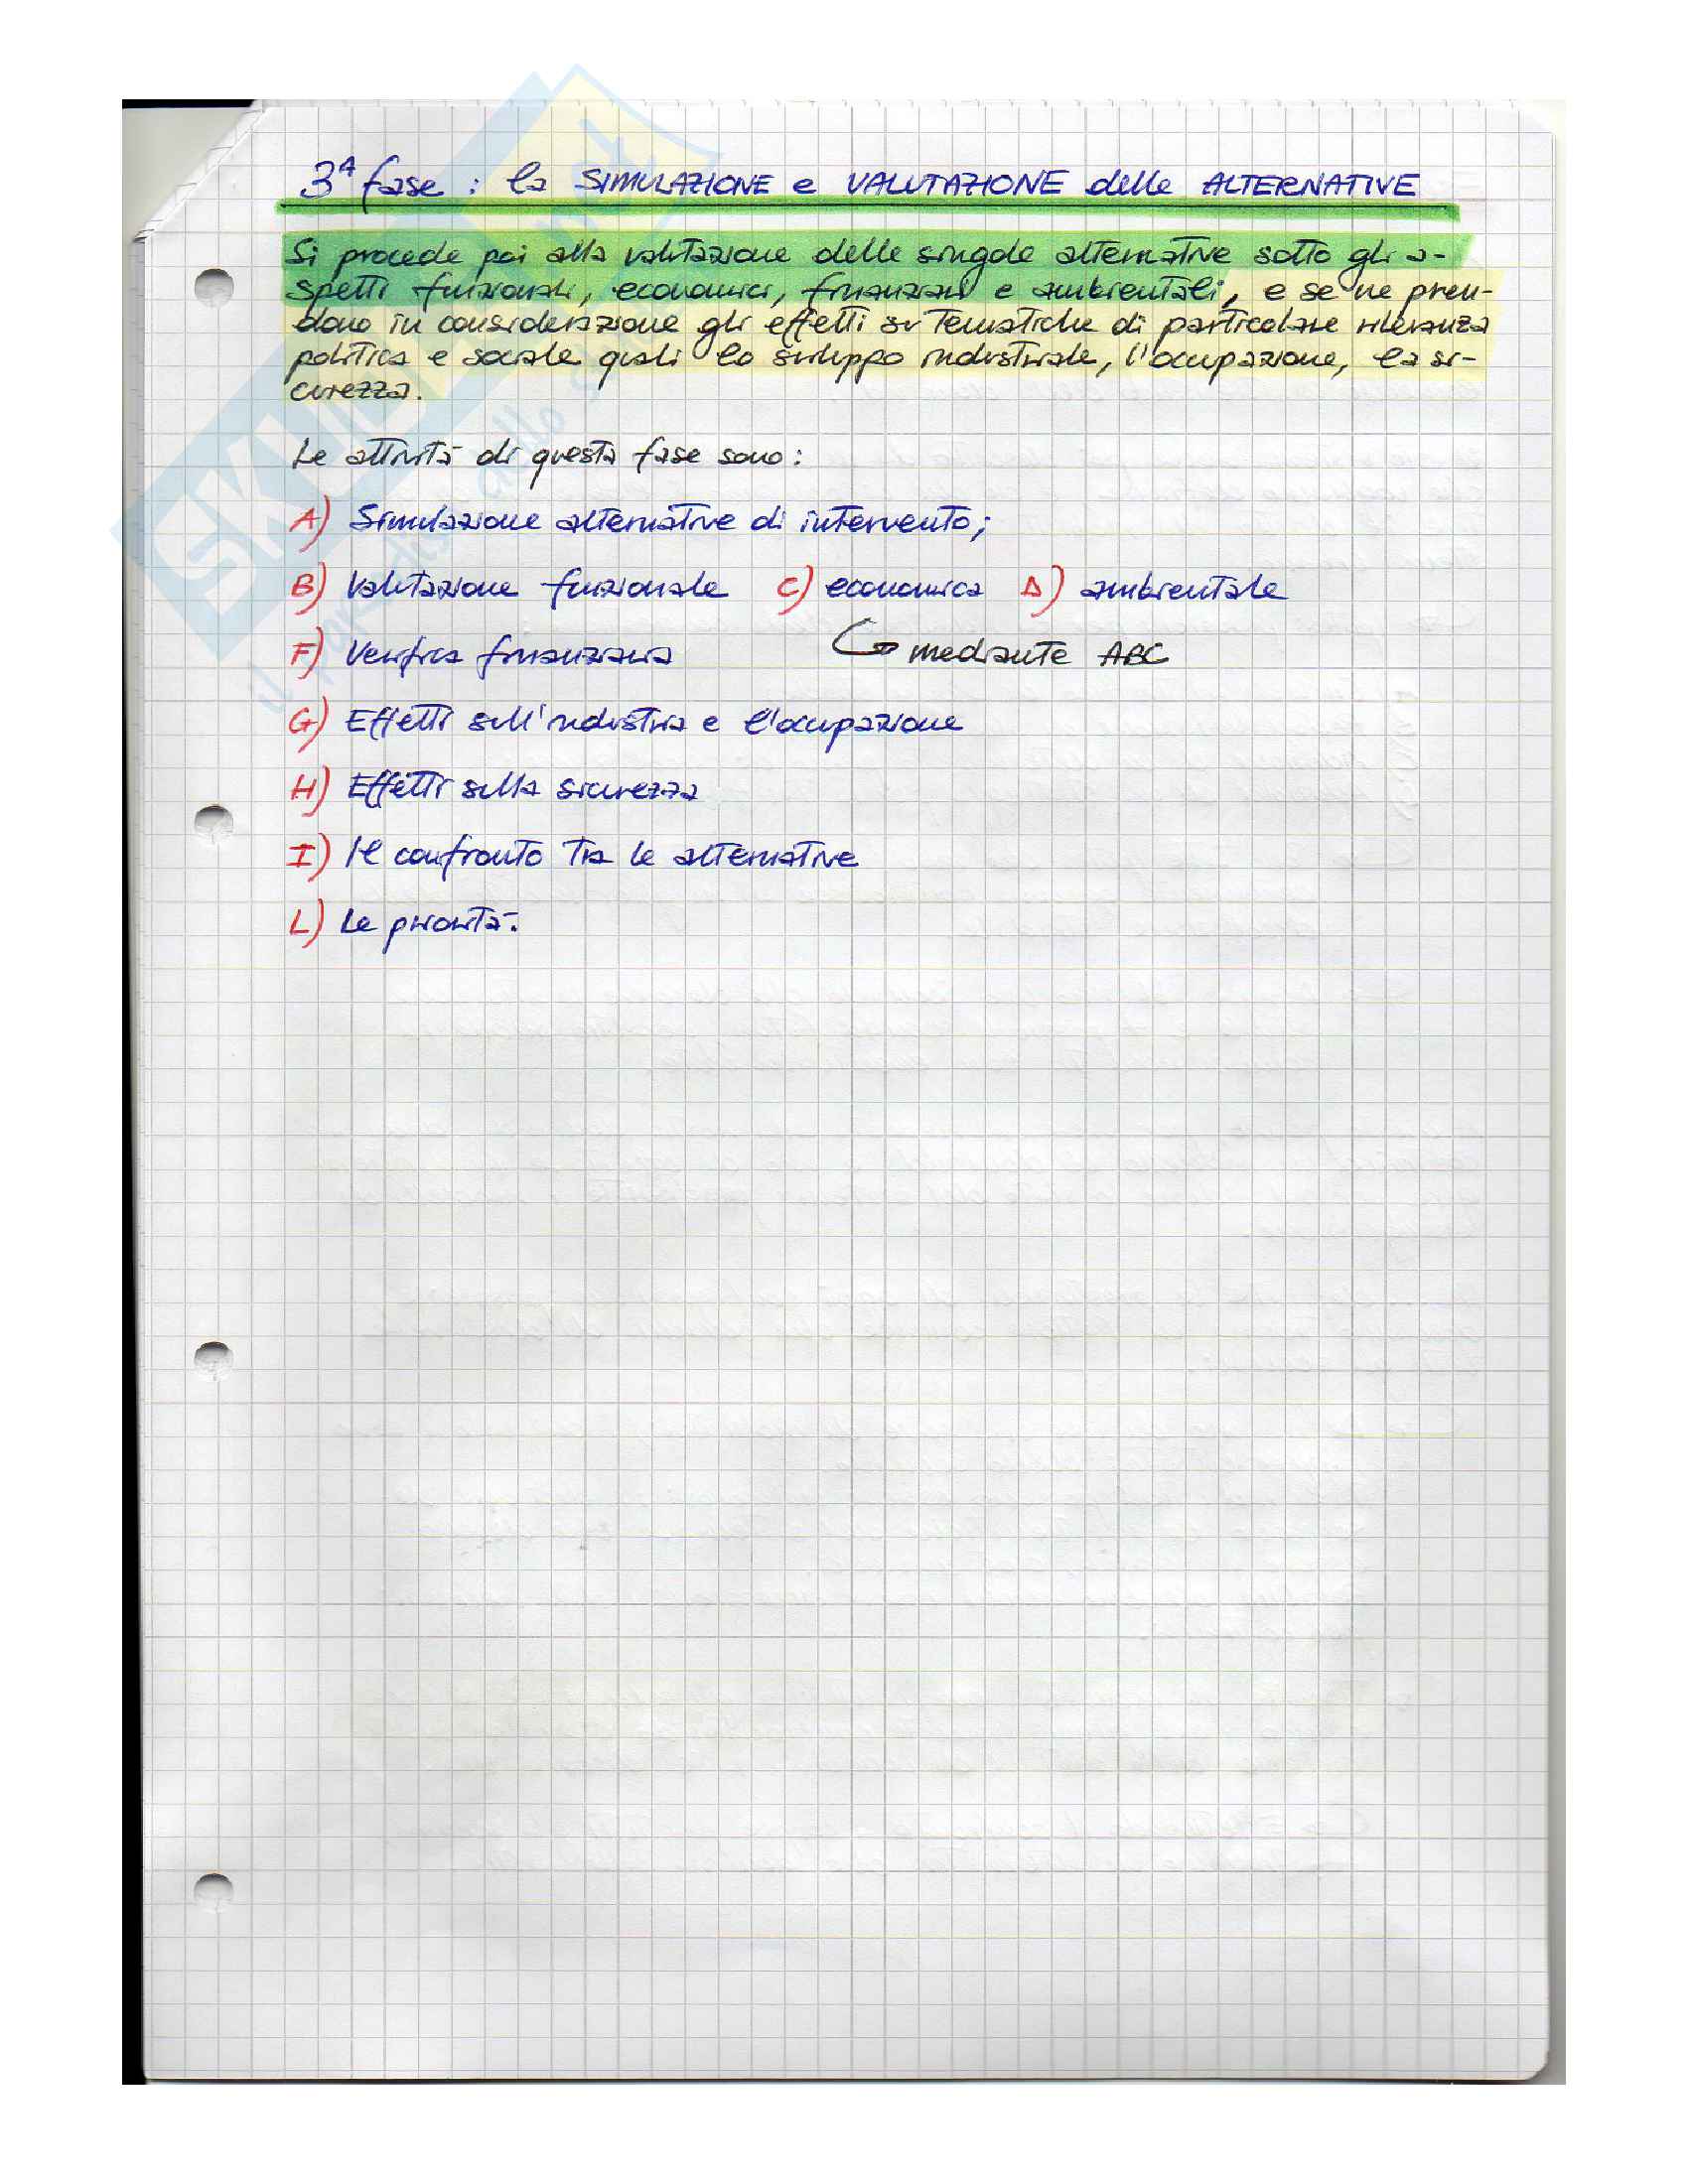 3ª fase : la SIMULAZIONE e VALUTAZIONE delle ALTERNATIVE
Si procede poi alla valutazione delle singole alternative sotto gli a-
spetti funzionali, economici, finanziari e ambientali, e se ne pren-
dono in considerazione gli effetti su tematiche di particolare rilevanza
politica e sociale quali lo sviluppo industriale, l'occupazione, la si-
curezza.
Le attività di questa fase sono:
A) Simulazione alternative di intervento;
B) Valutazione funzionale C) economica D) ambientale
F) Verifica finanziaria mediante ABC
G) Effetti sull'industria e l'occupazione
H) Effetti sulla sicurezza
I) Il confronto tra le alternative
L) Le priorità.